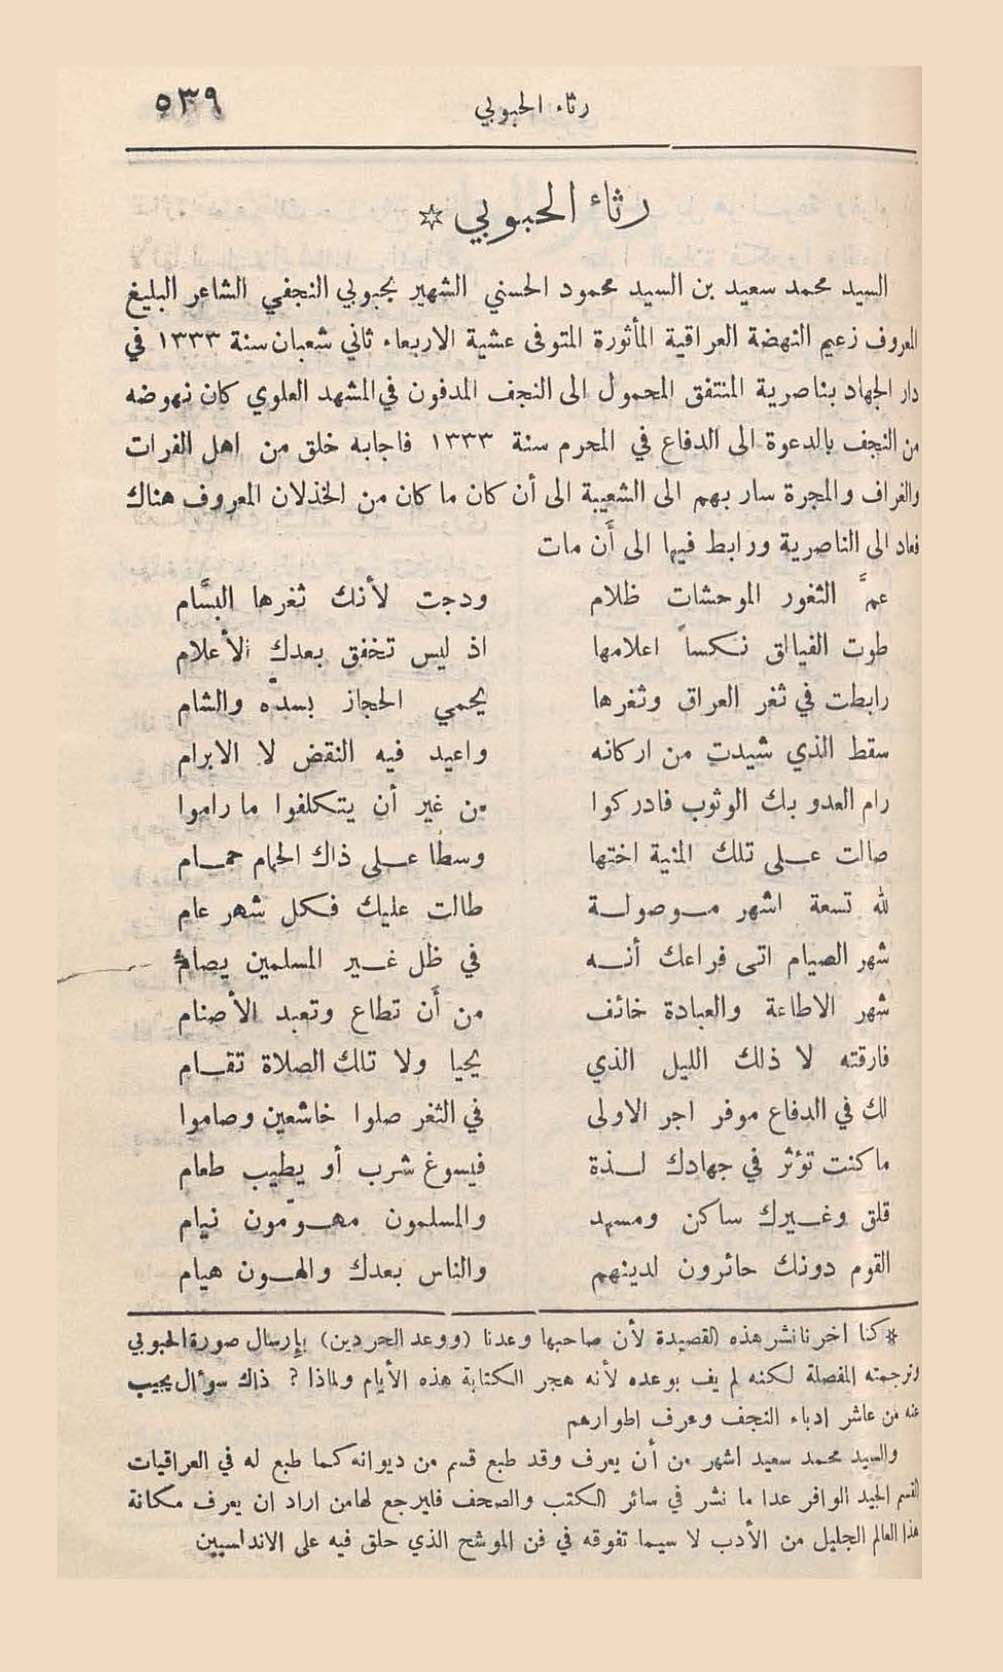 رثاء الحبوبي ٥٣٩
رثاء الحبوبي ✡
السيد محمد سعيد بن السيد محمود الحسني الشهير بحبوبي النجفي الشاعر البليغ
المعروف زعيم النهضة العراقية المأثورة المتوفى عشية الاربعاء ثاني شعبان سنة ١٣٣٣ في
دار الجهاد بناصرية المنتفق المحمول الى النجف المدفون في المشهد العلوي كان نهوضه
من النجف بالدعوة الى الدفاع في المحرم سنة ١٣٣٣ فاجابه خلق من اهل الفرات
والغراف والمجرة سار بهم الى الشعيبة الى أن كان ما كان من الخذلان المعروف هناك
فعاد الى الناصرية ورابط فيها الى أن مات
عمَّ الثغور الموحشات ظلام ودجت لأنك ثغرها البسَّام
طوت الفيالق نكساً اعلامها اذ ليس تخفق بعدك الأعلام
رابطت في ثغر العراق وثغرها يحمي الحجاز بسدّه والشام
سقط الذي شيدت من اركانه واعيد فيه النقض لا الابرام
رام العدو بك الوثوب فادركوا من غير أن يتكلفوا ما راموا
صالت عـلى تلك المنية اختها وسطا عـلى ذاك الحمام حمـام
لله تسعة اشهر مـوصولـة طالت عليك فكل شهر عام
شهر الصيام اتى فراعك أنـه في ظل غـير المسلمين يصام
شهر الاطاعة والعبادة خائف من أن تطاع وتعبد الأصنام
فارقته لا ذلك الليل الذي يحيا ولا تلك الصلاة تقـام
لك في الدفاع موفر اجر الاولى في الثغر صلوا خاشعين وصاموا
ما كنت تؤثر في جهادك لـذة فيسوغ شرب أو يطيب طعام
قلق وغـيرك ساكن ومسهد والمسلمون مهـوّمون نيام
القوم دونك حائرون لدينهم والناس بعدك والهـون هيام
* كنا اخرنا نشر هذه القصيدة لأن صاحبها وعدنا (ووعد الحر دين) بإرسال صورة الحبوبي
وترجمته المفصلة لكنه لم يف بوعده لأنه هجر الكتابة هذه الأيام ولماذا ? ذاك سوءال يجيب
عنه من عاشر ادباء النجف وعرف اطوارهم
والسيد محمد سعيد اشهر من أن يعرف وقد طبع قسم من ديوانه كما طبع له في العراقيات
القسم الجيد الوافر عدا ما نشر في سائر الكتب والصحف فليرجع لها من اراد ان يعرف مكانة
هذا العالم الجليل من الأدب لا سيما تفوقه في فن الموشح الذي حلق فيه على الاندلسيين